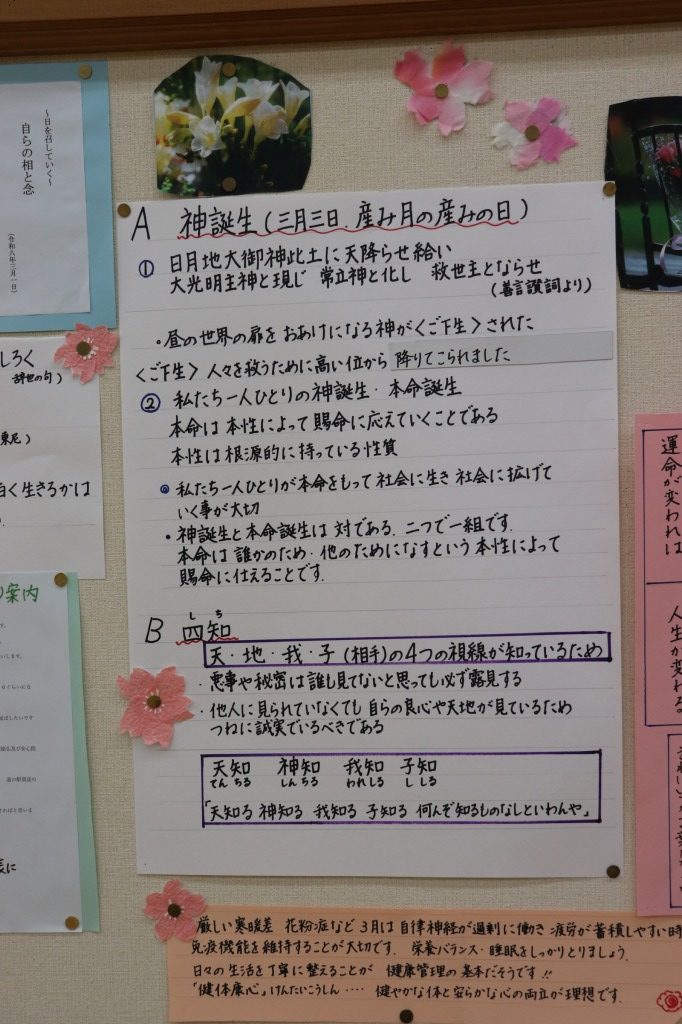 ～日を召していく～
自らの相と念
(令和八年三月一日)
しろく
辞世の句)
東尼)
白く生きるかは
の案内
A 神誕生(三月三日.産み月の産みの日)
① 日月地大御神此土に天降らせ給い
大光明主神と現じ 常立神と化し 救世主とならせ
(善言讃詞より)
・昼の世界の扉を おあけになる神が〈ご下生〉された
〈ご下生〉人々を救うために高い位から 降りてこられました
② 私たち一人ひとりの神誕生・本命誕生
本命は本性によって賜命に応えていくことである
本性は根源的に持っている性質
◎ 私たち一人ひとりが本命をもって社会に生き社会に拡げて
いく事が大切
・神誕生と本命誕生は 対である. 二つで一組です.
本命は 誰かのため・他のためになすという本性によって
賜命に仕えることです.
し ち
B 四知
天・地・我・子(相手)の4つの視線が知っているため
・悪事や秘密は誰も見てないと思っても必ず露見する
・他人に見られていなくても 自らの良心や天地が見ているため
つねに誠実でいるべきである
天知 神知 我知 子知
てんちる しんちる われしる ししる
「天知る 神知る 我知る 子知る 何んぞ知るものなしといわんや」
運命が変われば
人生が変わる
厳しい寒暖差 花粉症など3月は自律神経が過剰に働き疲労が蓄積しやすい時
免疫機能を維持することが大切です. 栄養バランス・睡眠をしっかりとりましょう.
日々の生活を丁寧に整えることが 健康管理の基本だそうです!!
「健体康心」けんたいこうしん‥‥ 健やかな体と安らかな心の両立が理想です.